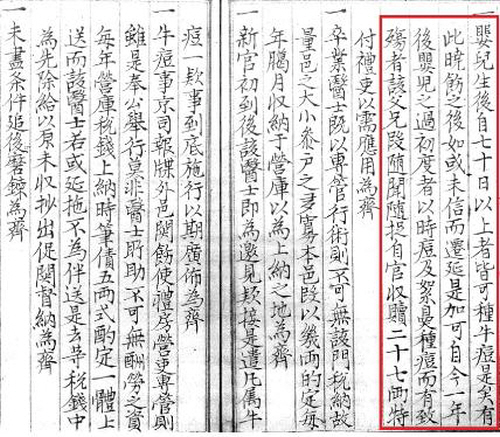 一 嬰兒生後自七十日以上者皆可種牛痘是矣有
此時飭之後如或未信而遷延是加可自今一年
後嬰児之過初度者以時痘及絮臭種痘而有致
殤者該父兄段隨聞隨捉自官收贖二十七兩特
付禮吏以需應用為齊
一 卒業醫士既以專管行術則不可無該門稅納故
量邑之大小叅戶之多寡本邑段以幾兩酌定每
年臈月收納于營庫以為上納之地為齊
一 新官初到後該醫士即為邀見欵接是遣凡屬牛
痘一欵事到底施行以期廣佈為齊
一 牛痘事京司報牒外邑關飭使禮房營吏專管則
雖是奉公舉行莫非醫士所助不可無酬勞之資
每年營庫稅錢上納時筆債五兩式酌定一體上
送而該醫士若或延拖不為伴送是去等稅錢中
為先除給以原未收抄出促關督納為齊
一 未盡条件追後磨鍊為齊